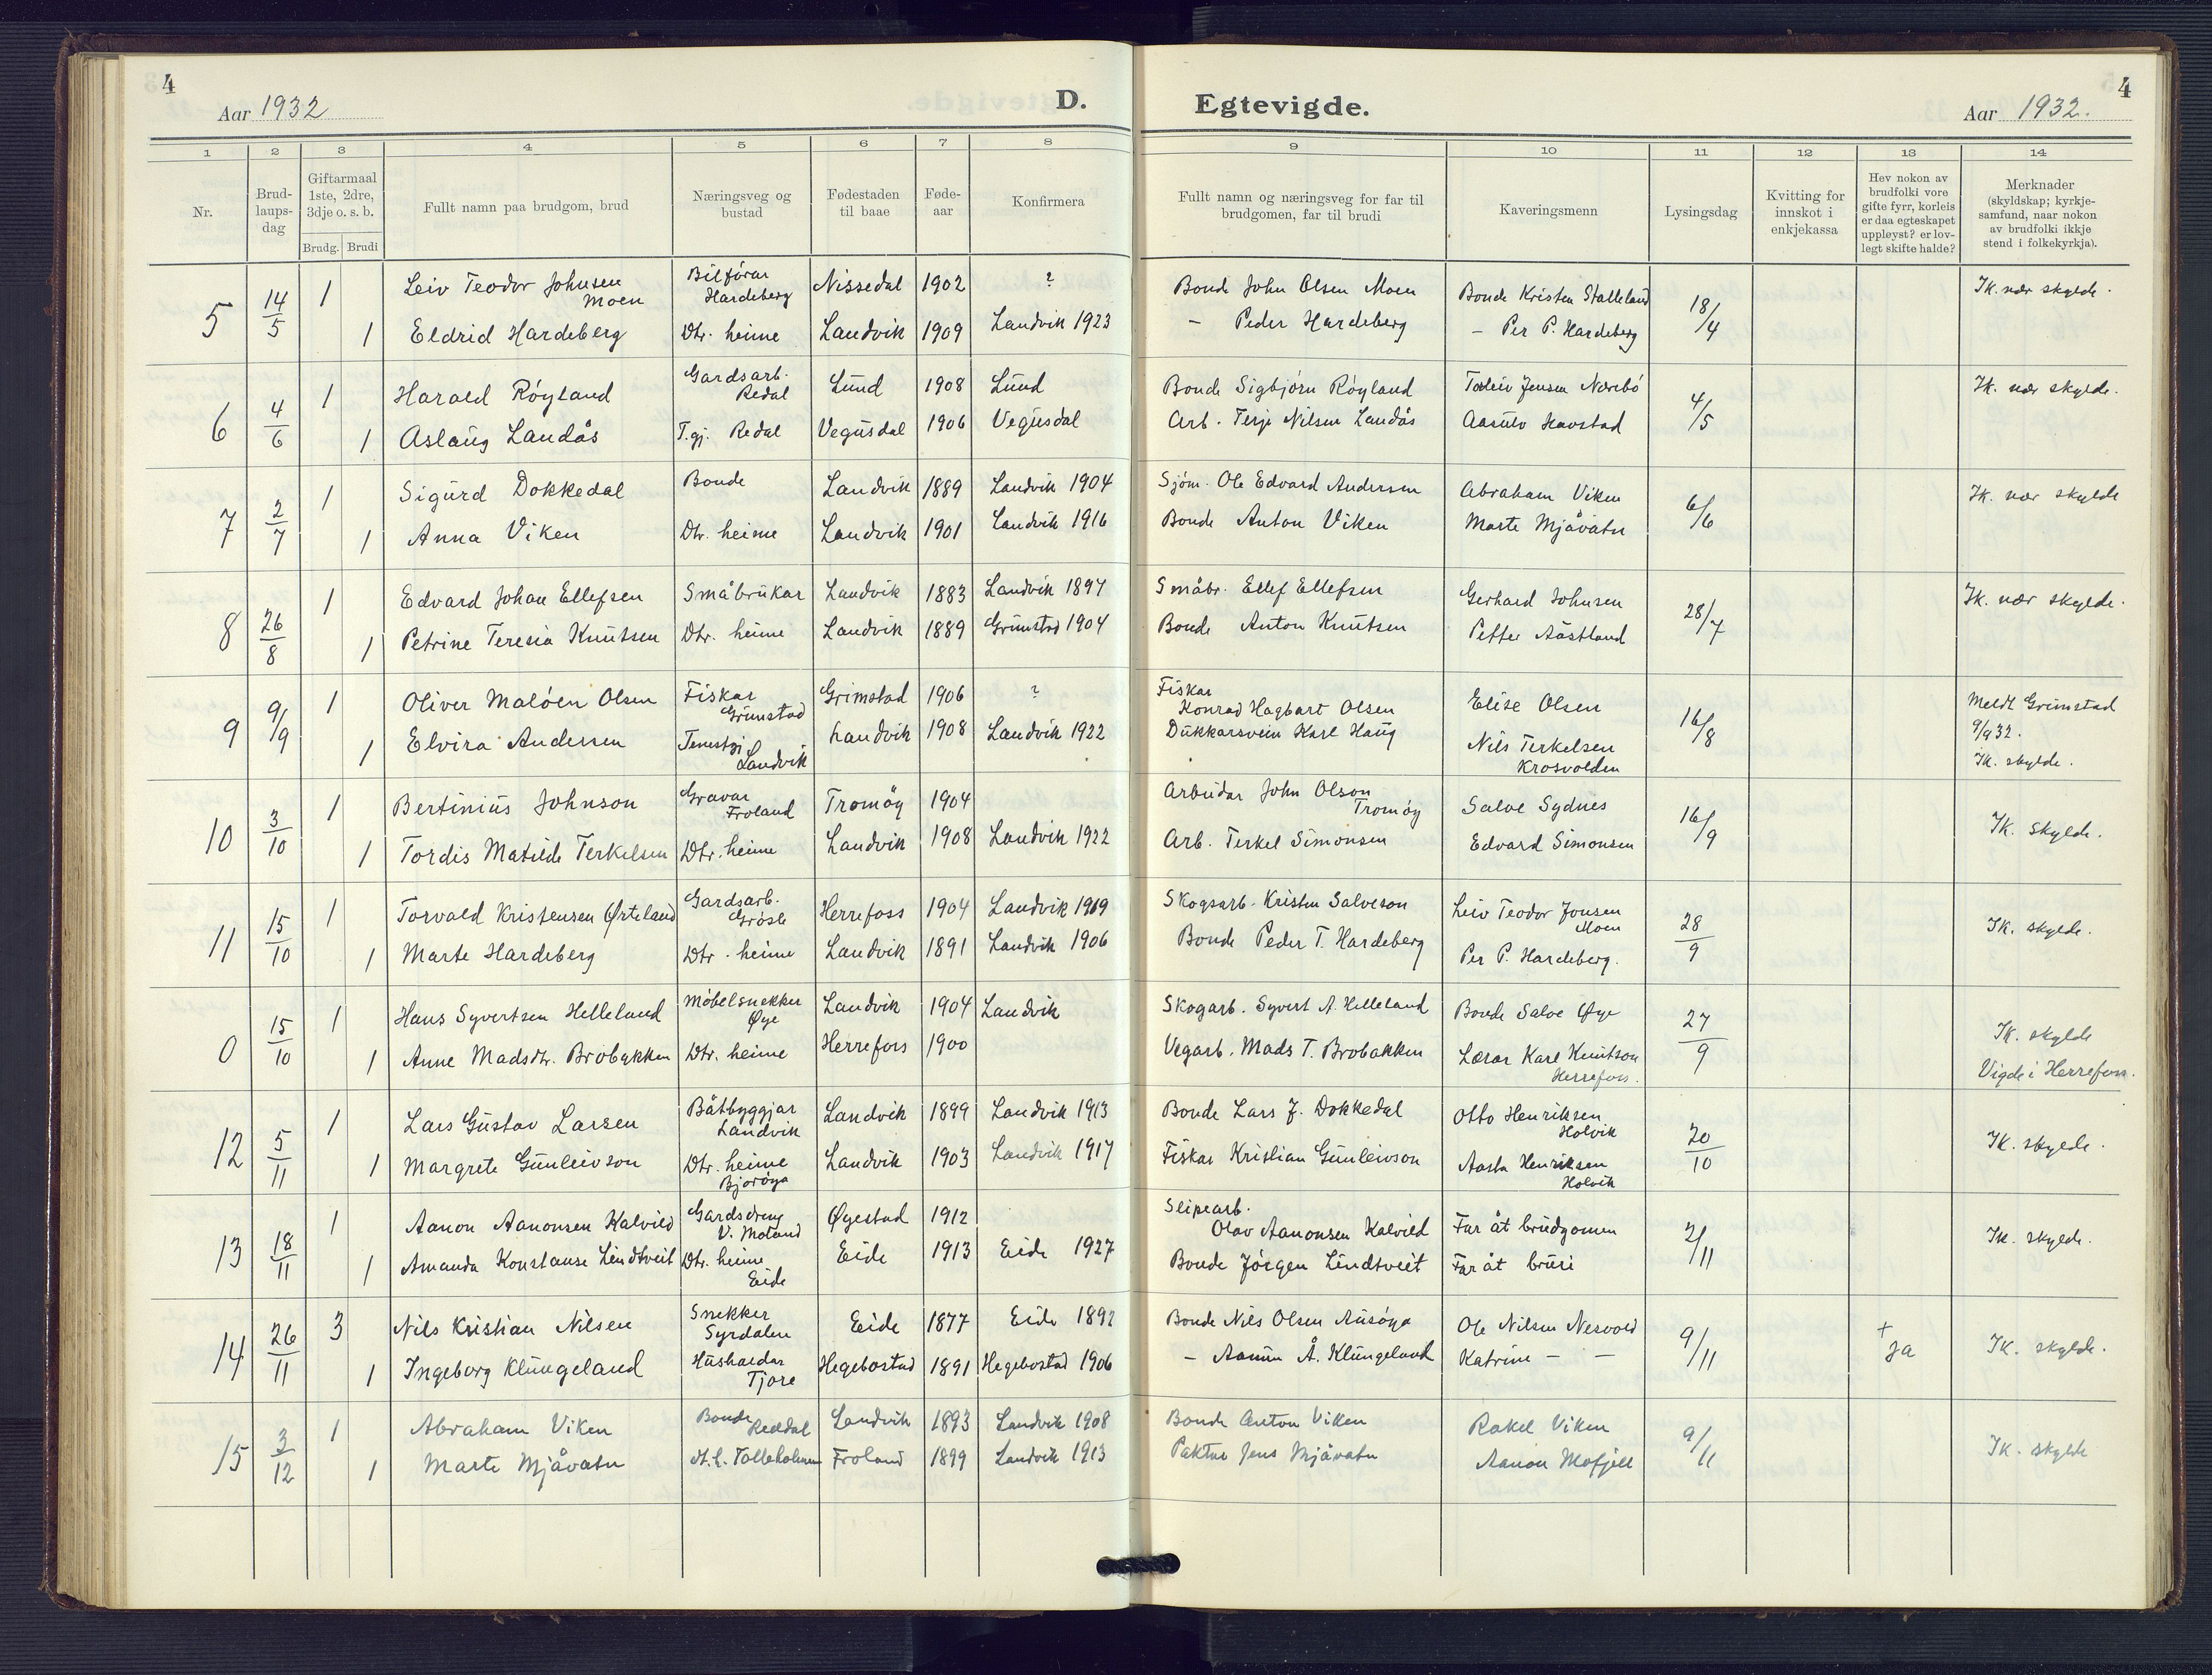 4
Aar 1932
D.
Egtevigde.
Aar 1932.
4
1 2 3 4 5 6 7 8 9 10 11 12 13 14
Nr.
Brud-
laups-
dag
Giftarmaal
1ste, 2dre,
3dje o. s. b.
Brudg. Brudi
Fullt namn paa brudgom, brud
Næringsveg og
bustad
Fødestaden
til baae
Føde-
aar
Konfirmera
Fullt namn og næringsveg for far til
brudgomen, far til brudi
Kaveringsmenn
Lysingsdag
Kvitting for
innskot i
enkjekassa
Hev nokon av
brudfolki vore
gifte fyrr, korleis
er daa egteskapet
uppløyst? er lov-
legt skifte halde?
Merknader
(skyldskap; kyrkje-
samfund, naar nokon
av brudfolki ikkje
stend i folkekyrkja).
5 14/5 1 Leiv Teodor Johnsen Moen Bilførar Hardeberg Nissedal 1902 ? Bonde John Olsen Moen Bonde Kristen Stalleland 18/4 Ik. nær skylde.
1 Eldrid Hardeberg Dtr. heime Landvik 1909 Landvik 1923 – Peder Hardeberg – Per P. Hardeberg
6 4/6 1 Harald Röyland Gardsarb. Redal Lund 1908 Lund Bonde Sigbjörn Röyland Jensen 4/5 Ik. nær skylde.
1 Aslaug Landås T.gj. Redal Vegusdal 1906 Vegusdal Arb. Terje Nilsen Landås Aasulv Havstad
7 2/7 1 Sigurd Dokkedal Bonde Landvik 1889 Landvik 1904 Sjöm. Ole Edvard Andersen Abraham Viken 6/6 Ik. nær skylde
1 Anna Viken Dtr. heime Landvik 1901 Landvik 1916 Bonde Anton Viken Marte Mjåvatn
8 26/8 1 Edvard Johan Ellefsen Småbrukar Landvik 1883 Landvik 1897 Småbr. Ellef Ellefsen Gerhard Johnsen 28/7 Ik. nær skylde.
1 Petrine Teresia Knutsen Dtr. heime Landvik 1889 Grimstad 1904 Bonde Anton Knutsen Petter Aastland
9 9/9 1 Oliver Malöen Olsen Fiskar Grimstad Grimstad 1906 ? Fiskar Konrad Hagbart Olsen Elise Olsen 16/8 Meldt Grimstad 9/9 32.
1 Elvira Andersen Landvik Landvik 1908 Landvik 1922 Dukkarsvein Karl Haug Nils Terkelsen Krosvolden Ik. skylde.
10 3/10 1 Bertinius Johnson Gravar Froland Tromöy 1904 Arbeidar John Olson Tromöy Salve Sydnes 16/9 Ik. skylde.
1 Tordis Matilde Terkelsen Dtr. heime Landvik 1908 Landvik 1922 Arb. Terkel Simonsen Edvard Simonsen
11 15/10 1 Torvald Kristensen Örteland Gardsarb. Grösle Herrefoss 1904 Landvik 1919 Skogsarb. Kristen Salveson Leiv Teodor Jonsen Moen 28/9 Ik. skylde.
1 Marte Hardeberg Dtr. heime Landvik 1891 Landvik 1906 Bonde Peder T. Hardeberg Per P. Hardeberg.
0 15/10 1 Hans Syvertsen Helleland Möbelsnekker Øye Landvik 1904 Landvik Skogarb. Syvert A. Helleland Bonde Salve Øye 27/9 Ik. skylde
1 Anne Madsdtr. Brobakken Dtr. heime Herrefoss 1900 Vegarb. Mads T. Brobakken Lærar Karl Knutson Herrefoss. Vigde i Herrefoss.
12 5/11 1 Lars Gustav Larsen Båtbyggjar Landvik Landvik 1899 Landvik 1913 Bonde Lars J. Dokkedal Otto Henriksen Holvik 20/10 Ik. skylde.
1 Margrete Gunleivson Dtr. heime Bjoröya Landvik 1903 Landvik 1917 Fiskar Kristian Gunleivson Aasta Henriksen Holvik
13 18/11 1 Aanon Aanonsen Kalvild Gardsdreng V. Moland Øyestad 1912 Slipearb. Olav Aanonsen Kalvild Far åt brudgomen 2/11 Ik. skylde.
1 Amanda Konstanse Lindtveit Dtr. heime Eide Eide 1913 Eide 1927 Bonde Jörgen Lindtveit Far åt bruri
14 26/11 3 Nils Kristian Nilsen Snekker Syrdalen Eide 1877 Eide 1892 Bonde Nils Olsen Ausöya Ole Nilsen Nesvold 9/11 + Ja Ik. skylde.
1 Ingeborg Klungeland Hushaldar Tjore Hegebostad 1891 Hegebostad 1906 – Aanun Å. Klungeland Katrine – –
15 3/12 1 Abraham Viken Bonde Reddal Landvik 1893 Landvik 1908 Bonde Anton Viken Rakel Viken 9/11 Ik. skylde
1 Marte Mjåvatn Tolleholmen Froland 1899 Landvik 1913 Paktar Jens Mjåvatn Aanon Mofjell